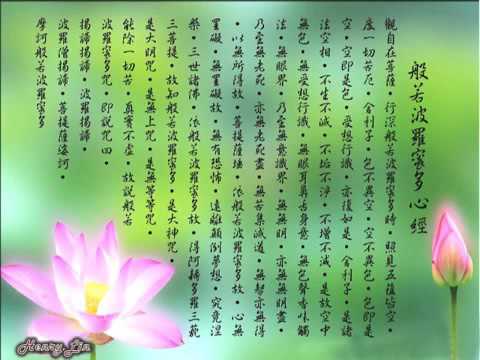 般若波羅蜜多心經
觀自在菩薩•行深般若波羅蜜多時•照見五蘊皆空•
度一切苦厄•舍利子•色不異空•空不異色•色即是
空•空即是色•受想行識•亦復如是•舍利子•是諸
法空相•不生不滅•不垢不淨•不增不減•是故空中
無色•無受想行識•無眼耳鼻舌身意•無色聲香味觸
法•無眼界•乃至無意識界•無無明•亦無無明盡•
乃至無老死•亦無老死盡•無苦集滅道•無智亦無得
•以無所得故•菩提薩埵•依般若波羅蜜多故•心無
罣礙•無罣礙故•無有恐怖•遠離顛倒夢想•究竟涅
槃•三世諸佛•依般若波羅蜜多故•得阿耨多羅三藐
三菩提•故知般若波羅蜜多•是大神咒•
是大明咒•是無上咒•是無等等咒•
能除一切苦•真實不虛•故說般若
波羅蜜多咒•即說咒曰•
揭諦揭諦•波羅揭諦•
波羅僧揭諦•菩提薩婆訶•
摩訶般若波羅蜜多
Henry Lin